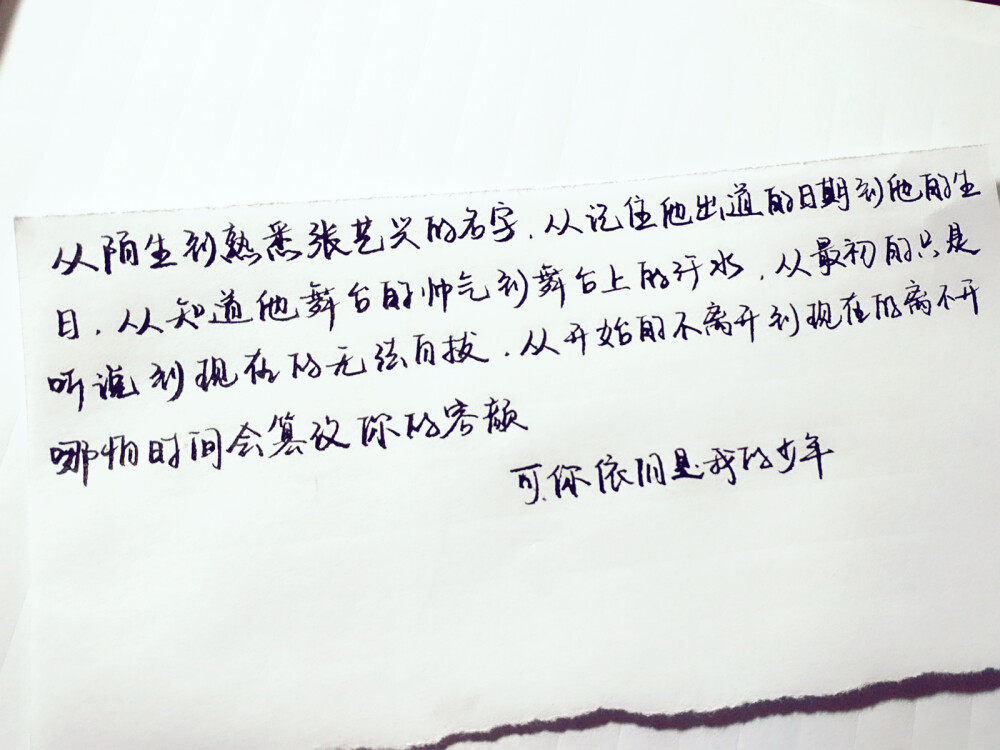 从陌生到熟悉张艺兴的名字.从记住他出道的日期到他的生
日.从知道他舞台的帅气到舞台上的汗水.从最初的只是
听说到现在的无法自拔.从开始的不离开到现在的离不开
哪怕时间会篡改你的容颜
可你依旧是我的少年